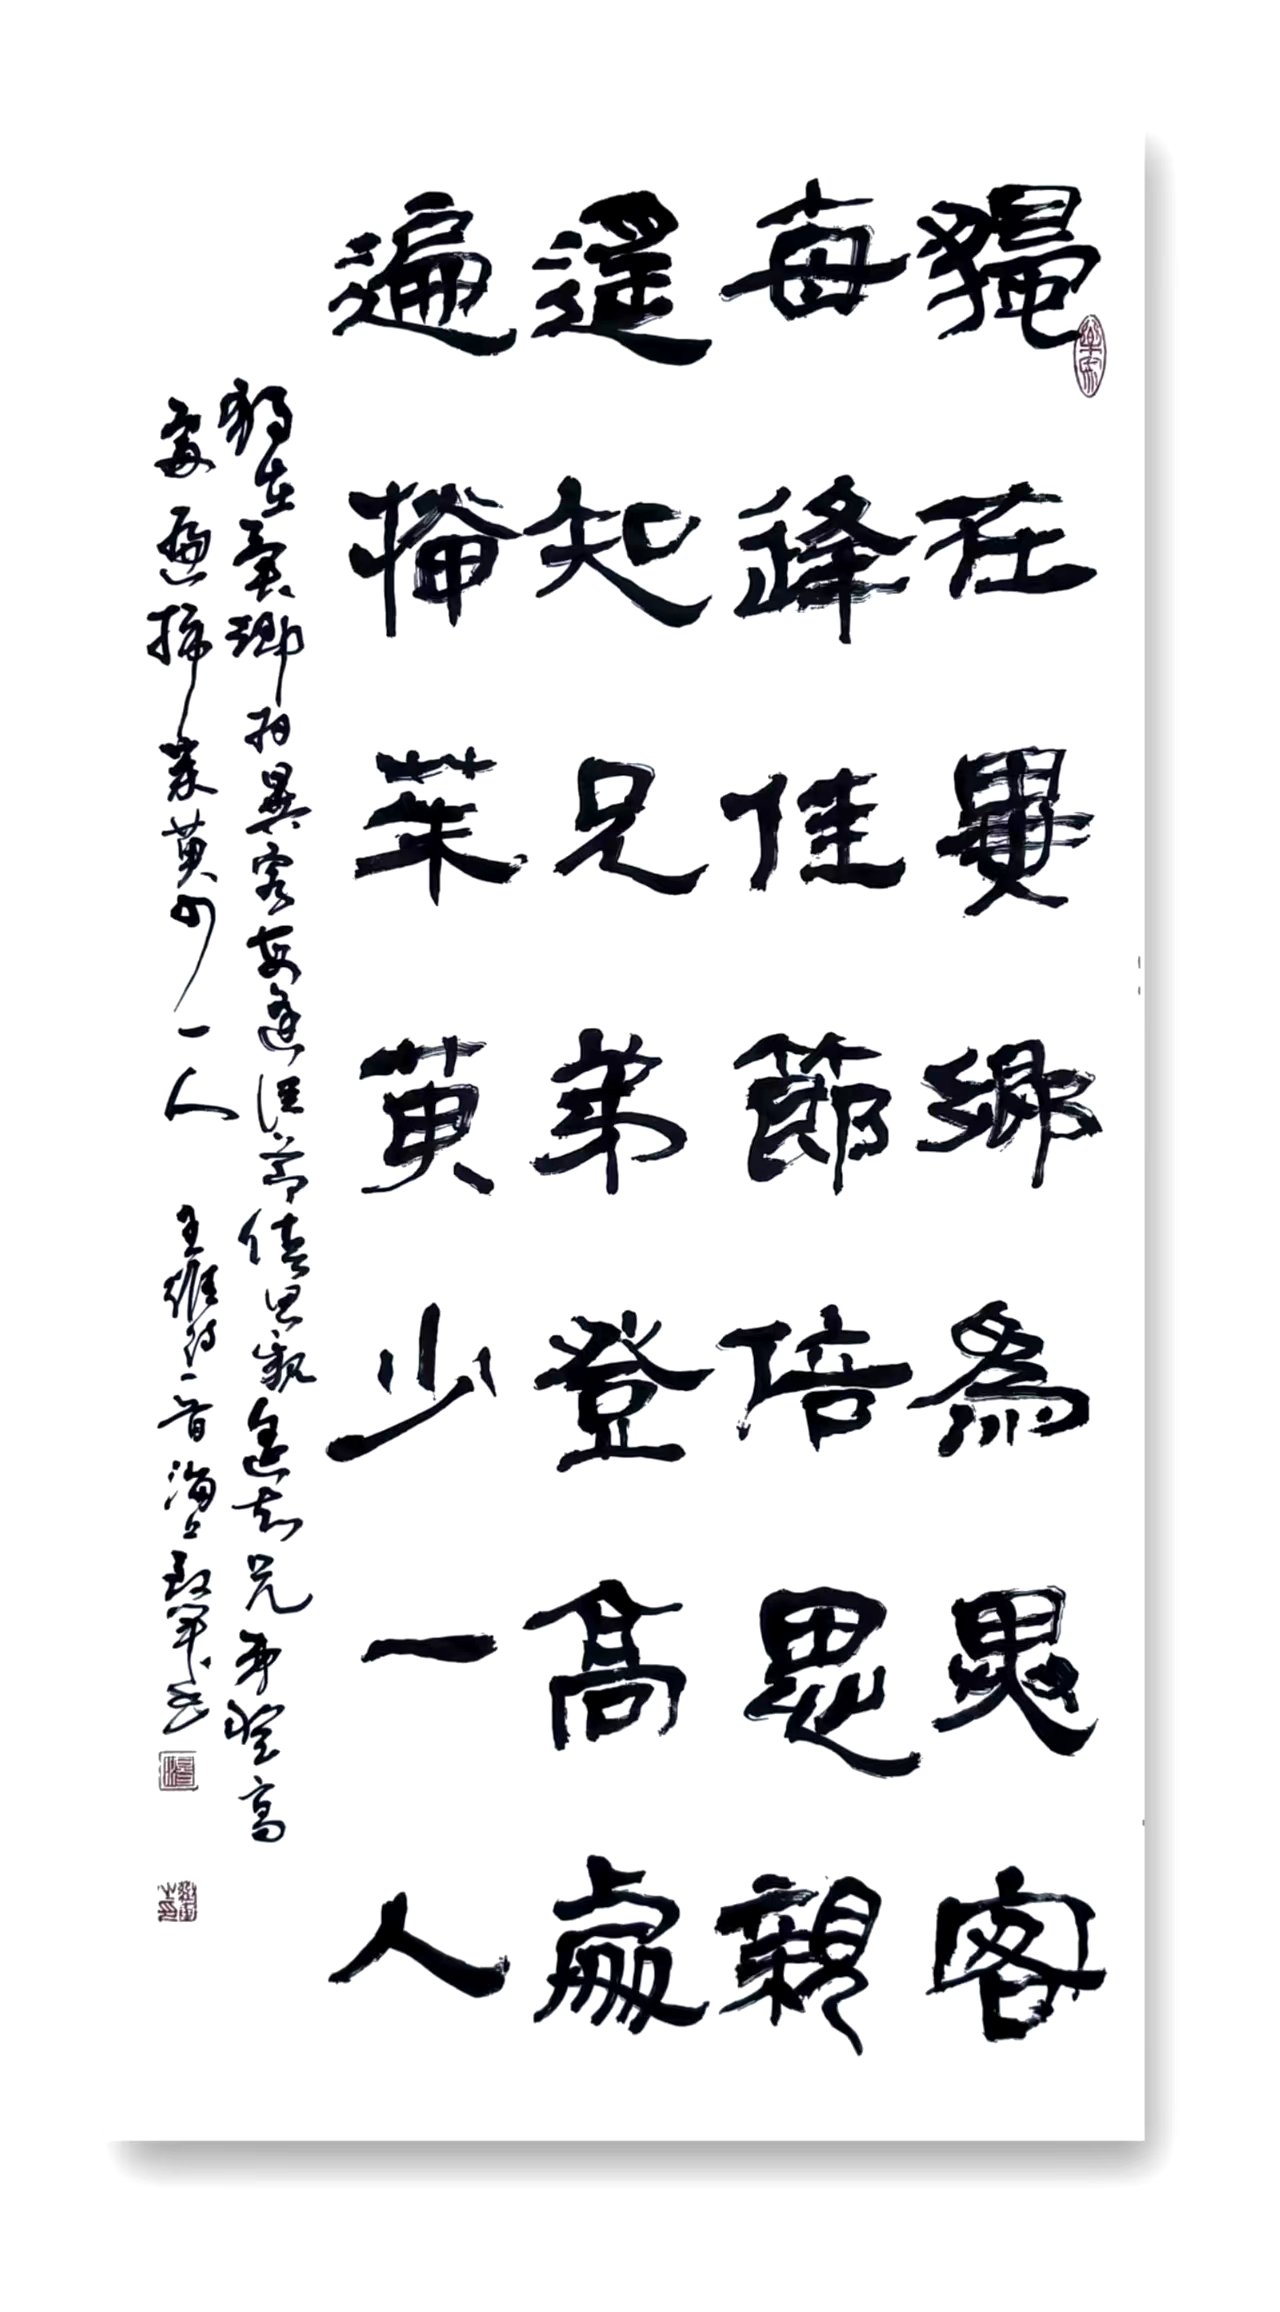 獨在異鄉為異客
每逢佳節倍思親
遙知兄弟登高處
遍插茱萸少一人
獨在異鄉為異客每逢佳節倍思親遙知兄弟登高
處遍插茱萸少一人 王維詩一首海上敬軍书